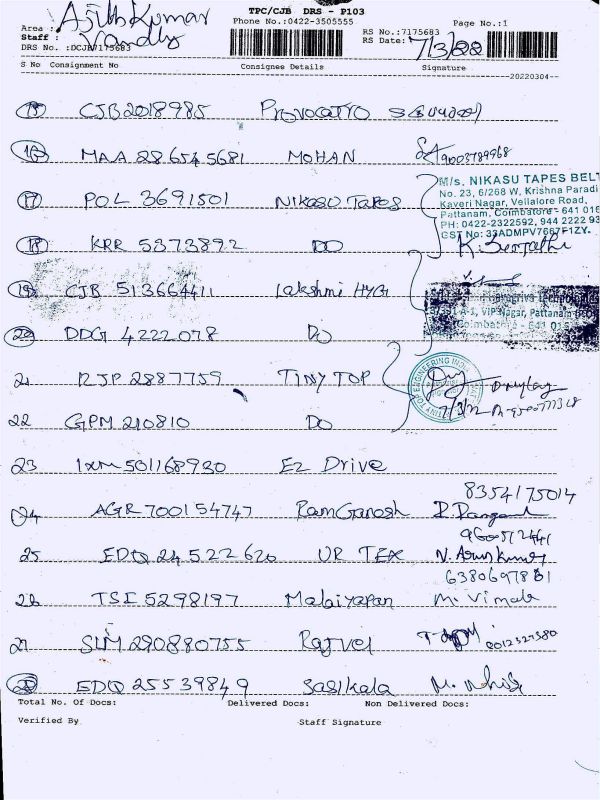 TPC/CJB DRS - P103
Area : Ajith Kumar
Phone No.:0422-3505555
Page No.:1
Staff :
RS No.:7175683
RS Date: 7/3/22
DRS No. :DCJB7175683
S No Consignment No Consignee Details Signature
20220304
15 CJB2018985 PROVOCATTO
16 MAA 286545681 MOHAN 9003789968
M/s. NIKASU TAPES BELT
No. 23, 6/268 W, Krishna Paradi
17 POL 3691501 NIKASU TAPES
Kaveri Nagar, Vellalore Road,
Pattanam, Coimbatore - 641 016
PH: 0422-2322592, 944 2222 93
GST No: 33ADMPV7667F1ZY.
18 KRR 5373892 DO
19 CJB 513664411 Lakshmi HYG
VIP Nagar, Pattanam
Coimbatore - 641 016
20 DDG 4222078 DO
21 RJP 2887759 TINY TOP
TINY TOP ENGINEERING INDIA
22 GPM 210810 DO
23 IXM 501168930 Ez Drive
8354175014
24 AGR 700154747 RamGanesh
25 EDQ 24522620 UR TEX N. Arun Kumar
26 TSI 5298197 M. Vimala
27 SLM 290880755 Rajvel
28 EDQ 25539849 Sasikala
Total No. Of Docs: Delivered Docs: Non Delivered Docs:
Verified By Staff Signature